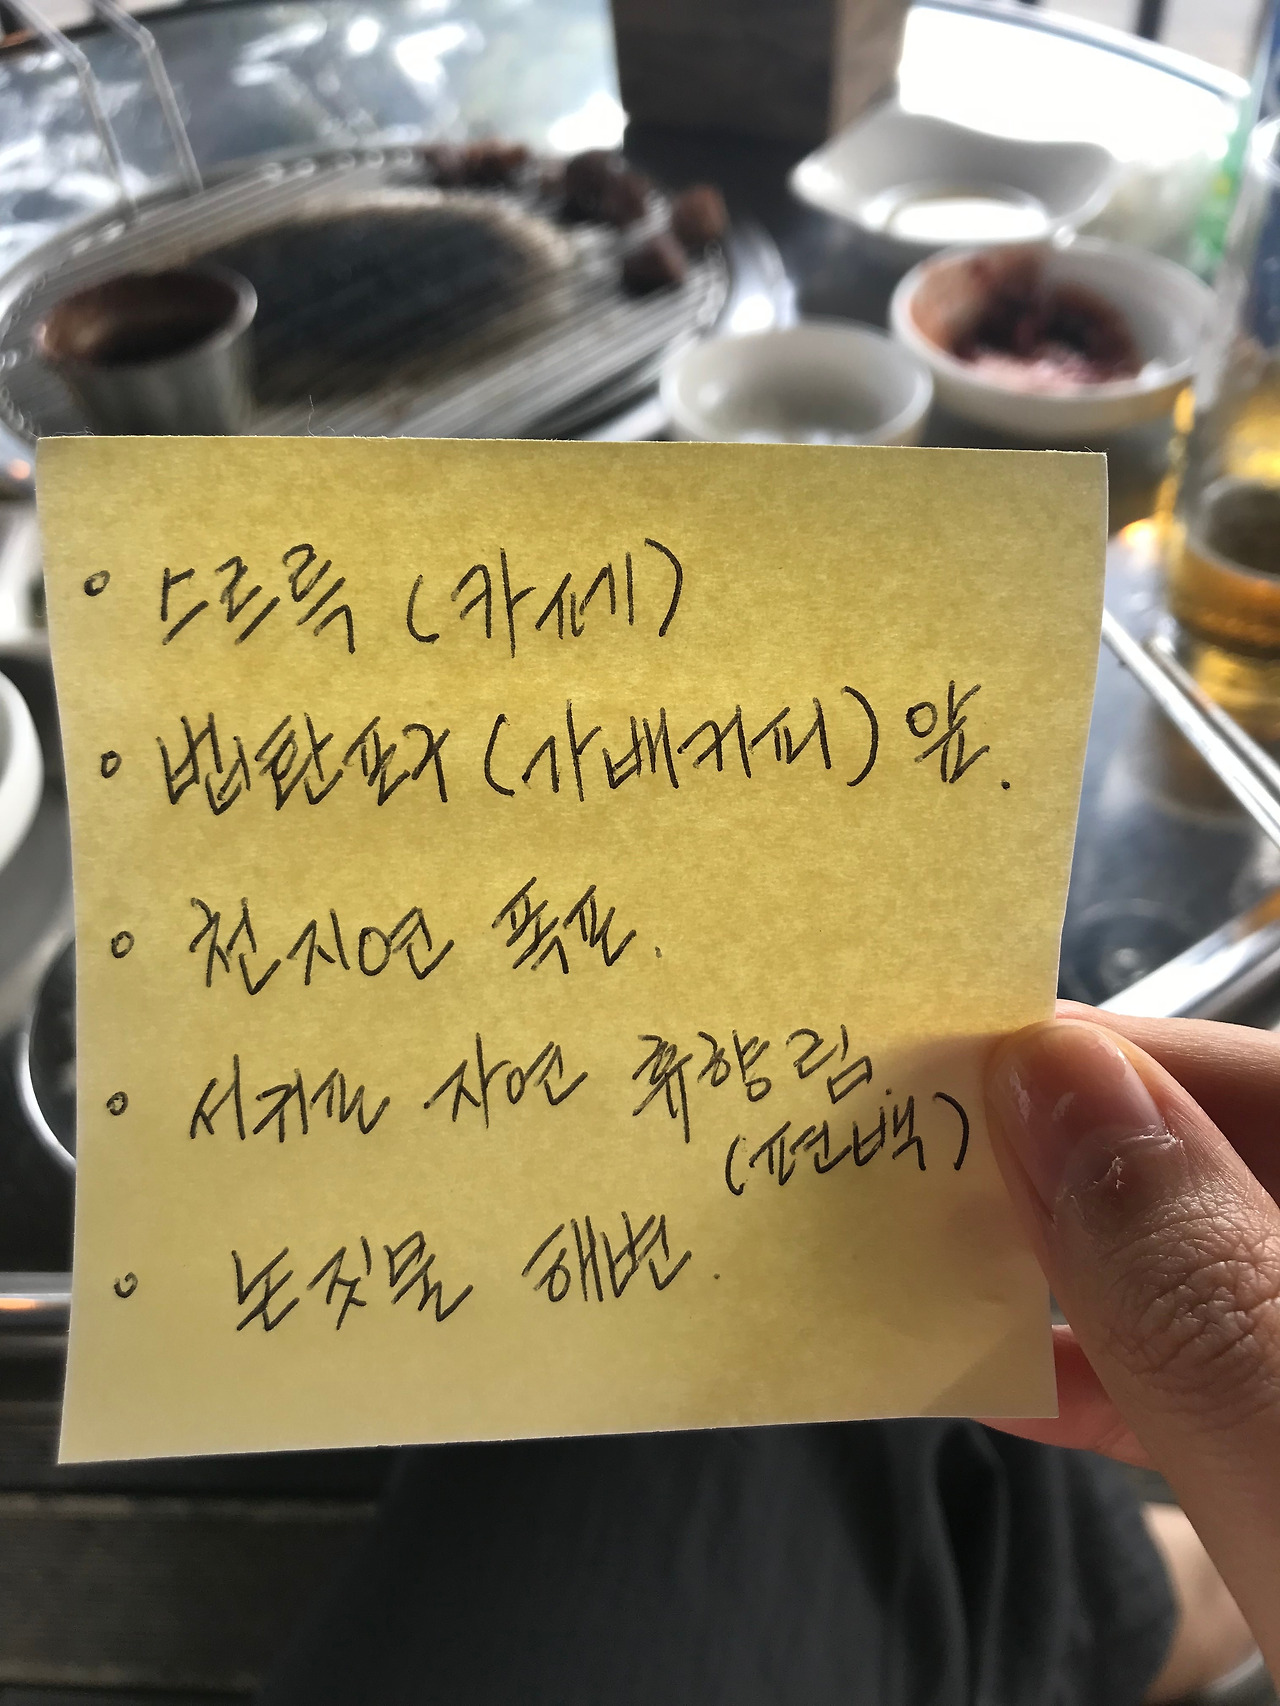 ◦ 스르륵 (카페)
◦ 법환포구 (가배커피) 앞.
◦ 천지연 폭포.
◦ 서귀포 자연 휴양림.
(편백)
◦ 논짓물 해변.